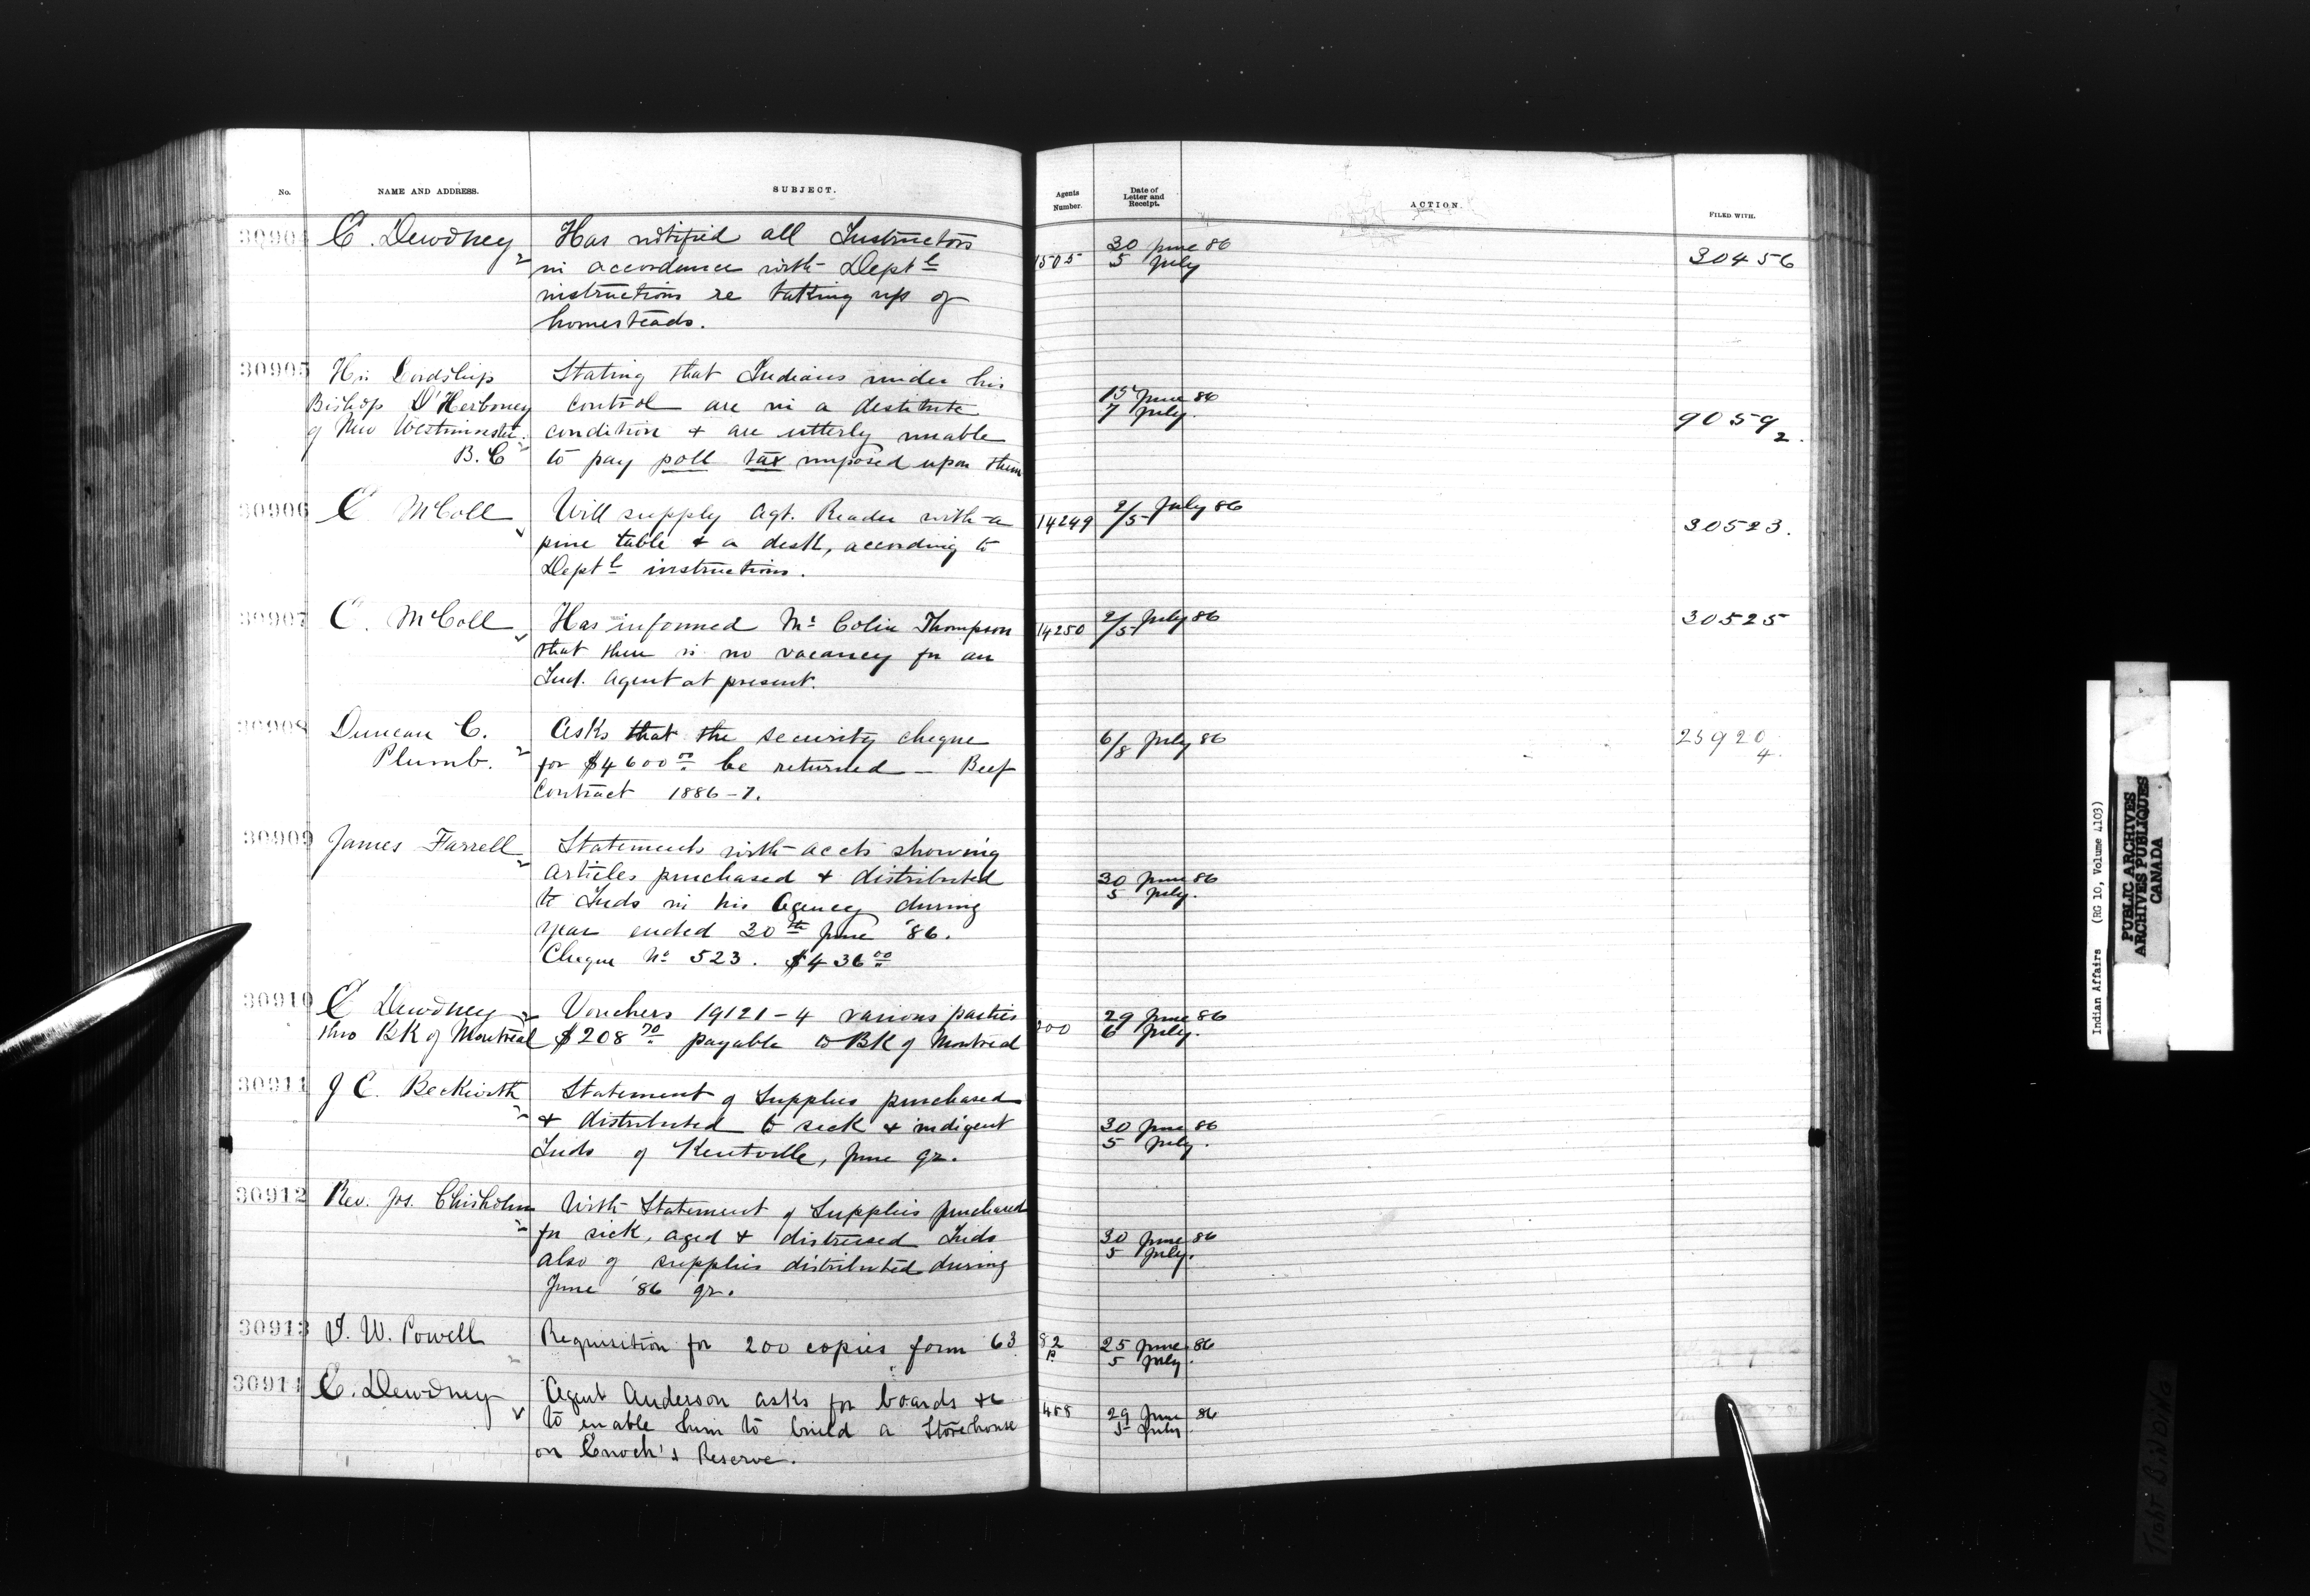 No.
NAME AND ADDRESS.
SUBJECT.
Agents Number.
Date of Letter and Receipt.
ACTION.
FILED WITH.
30904
E. Dewdney
Has notified all Instructors
in accordance with Deptl
instructions re taking up of
homesteads.
1505
30 June 86
5 July
30456
30905
His Lordship
Bishop D'Herbomey
of New Westminster.
B.C
Stating that Indians under his
control are in a destitute
condition & are utterly unable
to pay poll tax imposed upon them
15 June 86
7 July.
9059
2.
30906
E. McColl
Will supply Agt. Reader with a
pine table & a desk, according to
Deptl instructions.
14249
2/5 July 86
30523.
30907
E. McColl
Has informed Mr Colin Thompson
that there is no vacancy for an
Ind. Agent at present.
14250
2/5 July 86
30525
30908
Duncan C.
Plumb.
Asks that the security cheque
for $4600 00 be returned — Beef
Contract 1886-7.
6/8 July 86
25920
4.
30909
James Farrell
Statements with accts showing
articles purchased & distributed
to Inds in his Agency during
year ended 30th June '86.
Cheque No 523. $436 00
30 June 86
5 July.
30910
E Dewdney
thro BK of Montreal
Vouchers 19121-4 various parties
$208 70 payable to BK of Montreal
200
29 June 86
6 July.
30911
J C. Beckwith
Statement of Supplies purchased
& distributed to sick & indigent
Inds of Kentville, June qr.
30 June 86
5 July.
30912
Rev. Jos. Chisholm
With Statement of Supplies purchased
for sick, aged & distressed Inds
also of supplies distributed during
June '86 qr.
30 June 86
5 July.
30913
I. W. Powell
Requisition for 200 copies form 63
82
P.
25 June 86
5 July.
30914
E. Dewdney
Agent Anderson asks for boards &c
to enable him to build a Storehouse
on Enoch's Reserve.
29 June 86
5 July
Indian Affairs (RG 10, Volume 4103)
PUBLIC ARCHIVES
ARCHIVES PUBLIQUES
CANADA